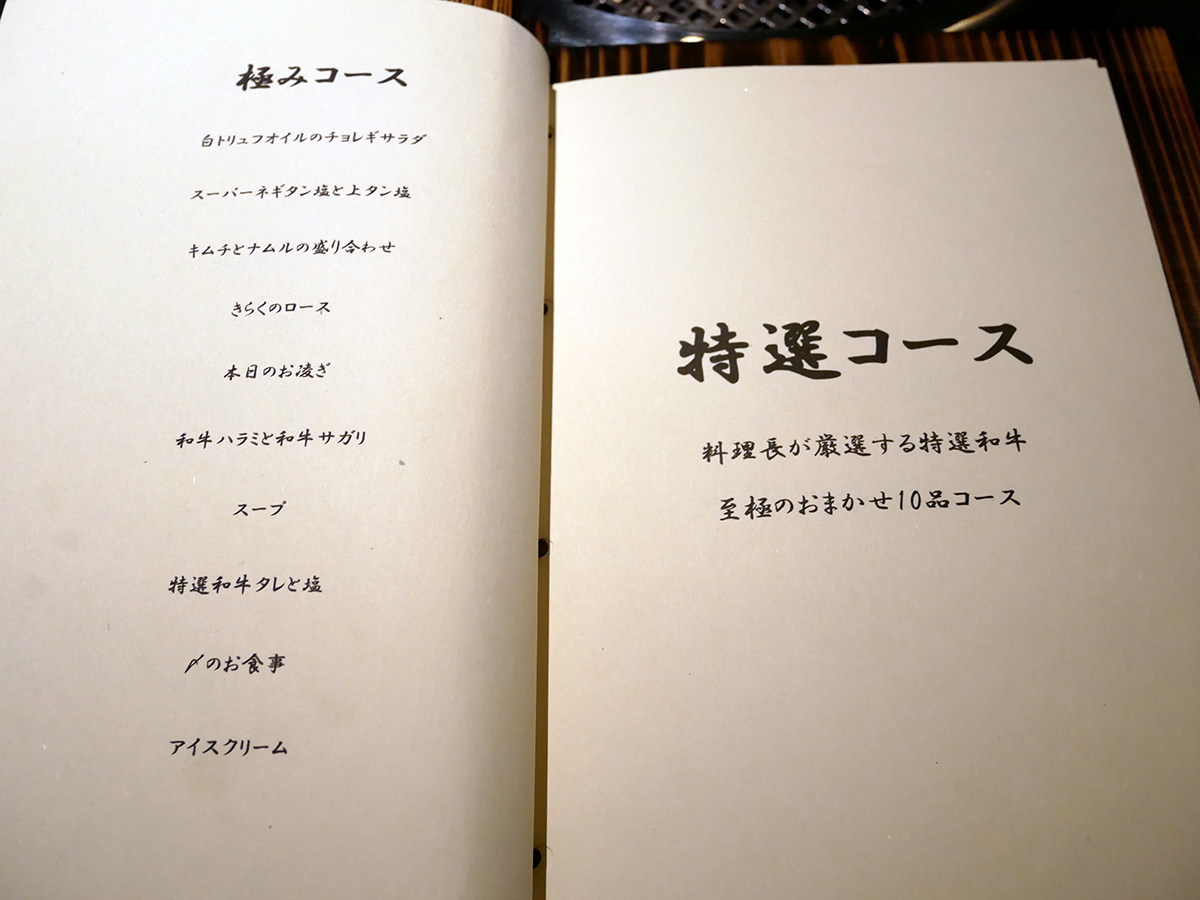 極みコース
白トリュフオイルのチョレギサラダ
スーパーネギタン塩と上タン塩
キムチとナムルの盛り合わせ
きらくのロース
本日のお凌ぎ
和牛ハラミと和牛サガリ
スープ
特選和牛タレと塩
〆のお食事
アイスクリーム
特選コース
料理長が厳選する特選和牛
至極のおまかせ10品コース